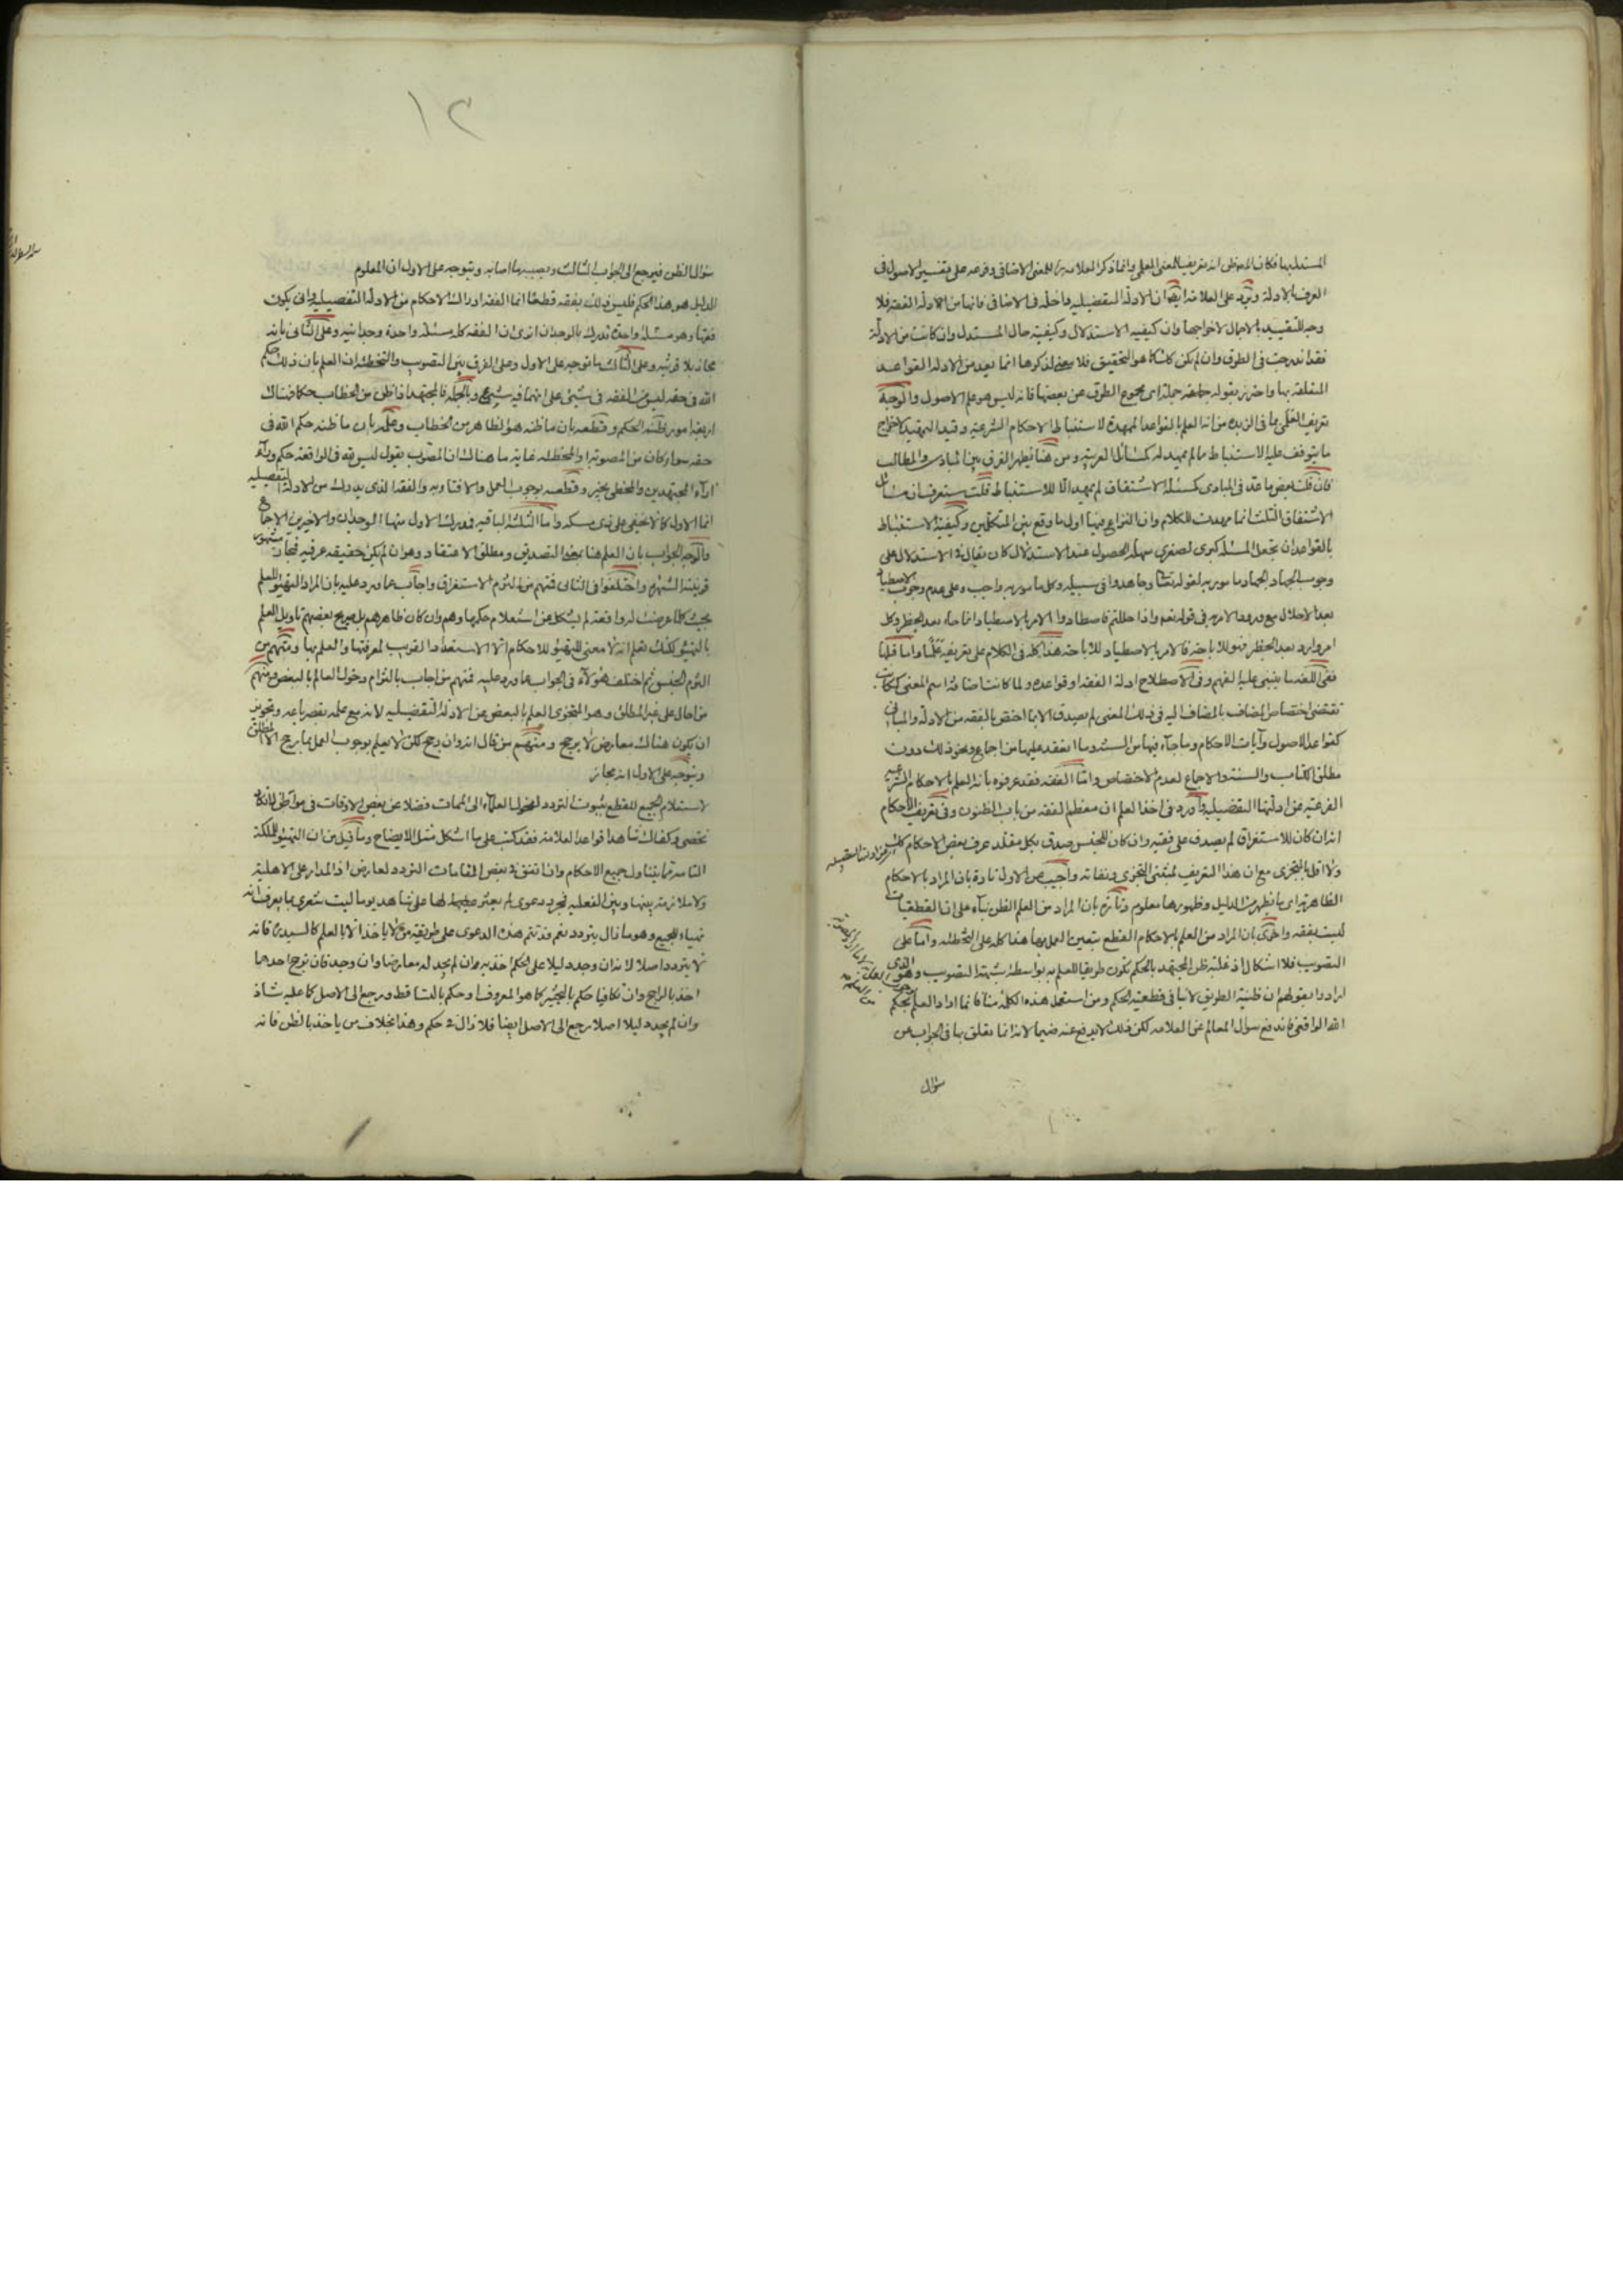 المستدل بها فكان انه تعريف للمعنى العلمي وانما ذكر العلامة للمعنى الاضافى وفرعه على تفسير الاصول فى
العرف بالادلة ويرد على العلامة ايضا ان الادلة التفصيلية داخلة فى الاضافى فانها من الادلة الفقه فلا
وجه للتقييد بالاجمال لاخراجها وان كيفية الاستدلال وكيفية حال المستدل وان كانت من الادلة
فقد اندرجت فى الطرق وان لم يكن كذلك كما هو التحقيق فلا معنى لذكرها انما يعد من الادلة القواعد
المتعلقة بها واحترز بقوله جملة اى مجموع الطرق عن بعضها فانه ليس هو علم الاصول والوجه
تعريف العلمى بما فى الزبدة من انه العلم بالقواعد الممهدة لاستنباط الاحكام الشرعية وقيد التمهيد لاخراج
ما يتوقف عليه الاستنباط مما لم يمهد له كمسائل العربية ومن هنا يظهر الفرق بين المبادى والمطالب
فان قلت بعض ما عد فى المبادى كمسئلة الاشتقاق لم يمهد الا للاستنباط قلت ستعرف ان مسائل
الاشتقاق الثلث انما مهدت للكلام وان النزاع فيها اول ما وقع بين المتكلمين وكيفية الاستنباط
بالقواعد ان تجعل المسئلة كبرى لصغرى سهلة الحصول عند الاستدلال كان يقال فى الاستدلال على
وجوب الجهاد الجهاد مامور به لقوله تعالى وجاهدوا فى سبيله وكل مامور به واجب وعلى عدم وجوب الاصطياد
بعد الاحلال مع ورود الامر به فى قوله تعالى واذا حللتم فاصطادوا الامر بالاصطياد انما جاء بعد الحظر وكل
امر وارد بعد الحظر فهو للاباحة فالامر بالاصطياد للاباحة هذا كله فى الكلام على تعريفه علما واما قلنا
ففى اللغة ما يبتنى عليه الفهم وفى الاصطلاح ادلة الفقه او قواعده ولما كانت اضافة اسم المعنى
تقتضى اختصاص المضاف بالمضاف اليه فى ذلك المعنى لم يصدق الا بما اختص بالفقه من الادلة والمبانى
كقواعد الاصول وآيات الاحكام وما جاء فيها من السنة وما انعقد عليها من اجماع ونحو ذلك دون
مطلق الكتاب والسنة والاجماع لعدم الاختصاص واما الفقه فقد عرفوه بانه العلم بالاحكام الشرعية
الفرعية عن ادلتها التفصيلية واورد فى اخذ العلم ان معظم الفقه من باب الظنون وفى تعريف الاحكام
انه ان كان للاستغراق لم يصدق على فقيه وان كان للجنس صدق بكل مقلد عرف بعض الاحكام كذلك
عن ادلتها التفصيلية
ولا اقل بالتجزى مع ان هذا التعريف لمثبتى التجزى ونفاته واجيب عن الاول تارة بان المراد بالاحكام
الظاهرية اى ما يظهر من الدليل وظهورها معلوم وتارة بان المراد من العلم الظن بناء على ان القطعيات
ليست بفقه واخرى بان المراد من العلم بالاحكام القطع بتعيين العمل بها هذا كله على التخطئة واما على
التصويب فلا اشكال اذ غلبة ظن المجتهد بالحكم تكون طريقا للعلم به بواسطة شبهة التصويب وهو الذى
ارادوا بقولهم ان ظنية الطريق لا ينافى قطعية الحكم ومن استعمل هذه الكلمة منا فانما اراد العلم بحكم
الله الواقعى فاندفع سؤال المعالم عن العلامة لكن ذلك لا يدفع عنه ضيما لانه انما تعلق بها فى الجواب عن
سؤال
١٢
سؤال الظن فيرجع الى الجواب الثالث ويصيبها اصابه ويتوجه على الاول ان المعلوم
للدليل هو هذا الحكم فليس ذلك بفقه قطعا انما الفقه ادراك الاحكام من الادلة التفصيلية وانى يكون
فقها وهو مسئلة واحدة تدرك بالوجدان اترى ان الفقه كله مسئلة واحدة وجدانية وعلى الثانى بانه
مجاز بلا قرينة وعلى الثالث ما توجه على الاول وعلى الفرق بين التصويب والتخطئة ان العلم بان ذلك حكم
الله فى حقه ليس من الفقه فى شيئ على انهما فيه شرع وبالجملة فالمجتهد اذا ظن من الخطاب حكما فهناك
اربعة امور ظنه الحكم وقطعه بان ما ظنه هو الظاهر من الخطاب وعلمه بان ما ظنه حكم الله فى
حقه سواء كان من المصوبة او المخطئة غاية ما هناك ان المصوب يقول ليس لله فى الواقعة حكم وراء
آراء المجتهدين والمخطى بخبر وقطعه بوجوب العمل والافتاء به والفقه الذى يدرك من الادلة التفصيلية
انما الاول كما لا يخفى على ذى مسكة واما الثلثة الباقية فمدرك الاول منها الوجدان والاخيرين الاجماع
والوجه الجواب بان العلم هنا بمعنى التصديق ومطلق الاعتقاد وهو ان لم يكن حقيقة عرفية فمجاز مشهور
قرينته الشهرة واختلفوا فى الثانى فمنهم من التزم الاستغراق واجاب عما ورد عليه بان المراد التهيؤ للعلم
بحيث كلما عرضت له واقعة لم يشكل عن استعلام حكمها وهم وان كان ظاهرهم بل صريح بعضهم تاويل العلم
بالتهيؤ لكنك تعلم انه لا معنى للتهيؤ للاحكام الا الاستعداد القريب لمعرفتها والعلم بها ومنهم من
التزم الجنس ثم اختلف هؤلاء فى الجواب عما ورد عليه فمنهم من اجاب بالتزام دخول العالم بالبعض ومنهم
من احال على غير المطلق وهو المتجزى العلم بالبعض عن الادلة التفصيلية لانه مع علمه بقصر باعه وتجويزه
ان يكون هناك معارض لا يرجح ومنهم من قال انه وان رجح لكن لا يعلم بوجوب العمل بما رجح الا المطلق
ويتوجه على الاول انه مجاز
لاستعلام الجميع للقطع بثبوت التردد لفحول العلماء الى الممات فضلا عن بعض الاوقات فى مواطن لا تكاد
تحصى وكفاك شاهدا قواعد العلامة فقد كتب على ما اشكل مثل الايضاح وما قيل من ان التهيؤ للملكة
التامة مما يتناول جميع الاحكام وان اتفق فى بعض المقامات التردد لعارض اذ المدار على الاهلية
ولا ملازمة بينها وبين الفعلية فمجرد دعوى لم يعثر عليها لها على شاهد يوما ليت شعرى بما يعرف انه
تهياء للجميع وهو ما زال يتردد نعم قد تتم هذه الدعوى على طريقة من لا ياخذ الا بالعلم كالسيد فانه
لا يتردد اصلا لانه ان وجد دليلا على الحكم اخذ به وان لم يجد له معارضا وان وجد فان ترجح احدهما
اخذ بالراجح وان تكافيا حكم بالتخيير كما هو المعروف او حكم بالتساقط ورجع الى الاصل كما عليه شاذ
وان لم يجد دليلا اصلا رجع الى الاصل ايضا فلا زال فى حكم وهذا بخلاف من ياخذ بالظن فانه